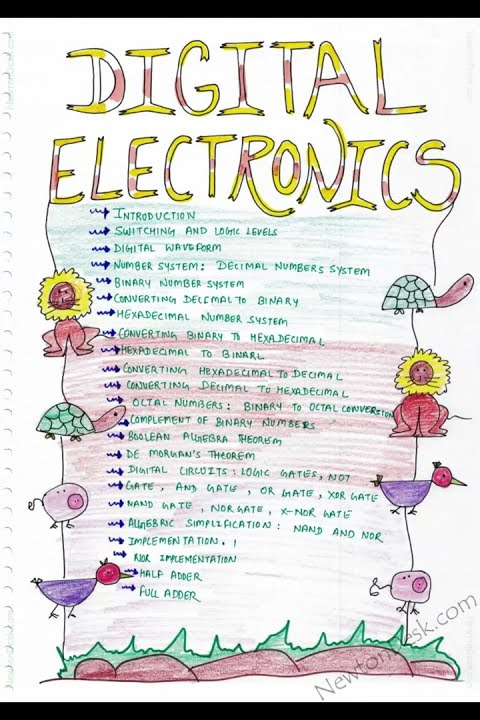 DIGITAL
ELECTRONICS
INTRODUCTION
SWITCHING AND LOGIC LEVELS
DIGITAL WAVEFORM
NUMBER SYSTEM: DECIMAL NUMBERS SYSTEM
BINARY NUMBER SYSTEM
CONVERTING DECIMAL TO BINARY
HEXADECIMAL NUMBER SYSTEM
CONVERTING BINARY TO HEXADECIMAL
HEXADECIMAL TO BINARL
CONVERTING HEXADECIMAL TO DECIMAL
CONVERTING DECIMAL TO HEXADECIMAL
OCTAL NUMBERS: BINARY TO OCTAL CONVERSION
COMPLEMENT OF BINARY NUMBERS
BOOLEAN ALGEBRA THEOREM
DE MORGAN'S THEOREM
DIGITAL CIRCUITS: LOGIC GATES, NOT
GATE, AND GATE, OR GATE, XOR GATE
NAND GATE, NOR GATE, X-NOR GATE
ALGEBRIC SIMPLIFICATION: NAND AND NOR
IMPLEMENTATION.
NOR IMPLEMENTATION
HALF ADDER
FULL ADDER